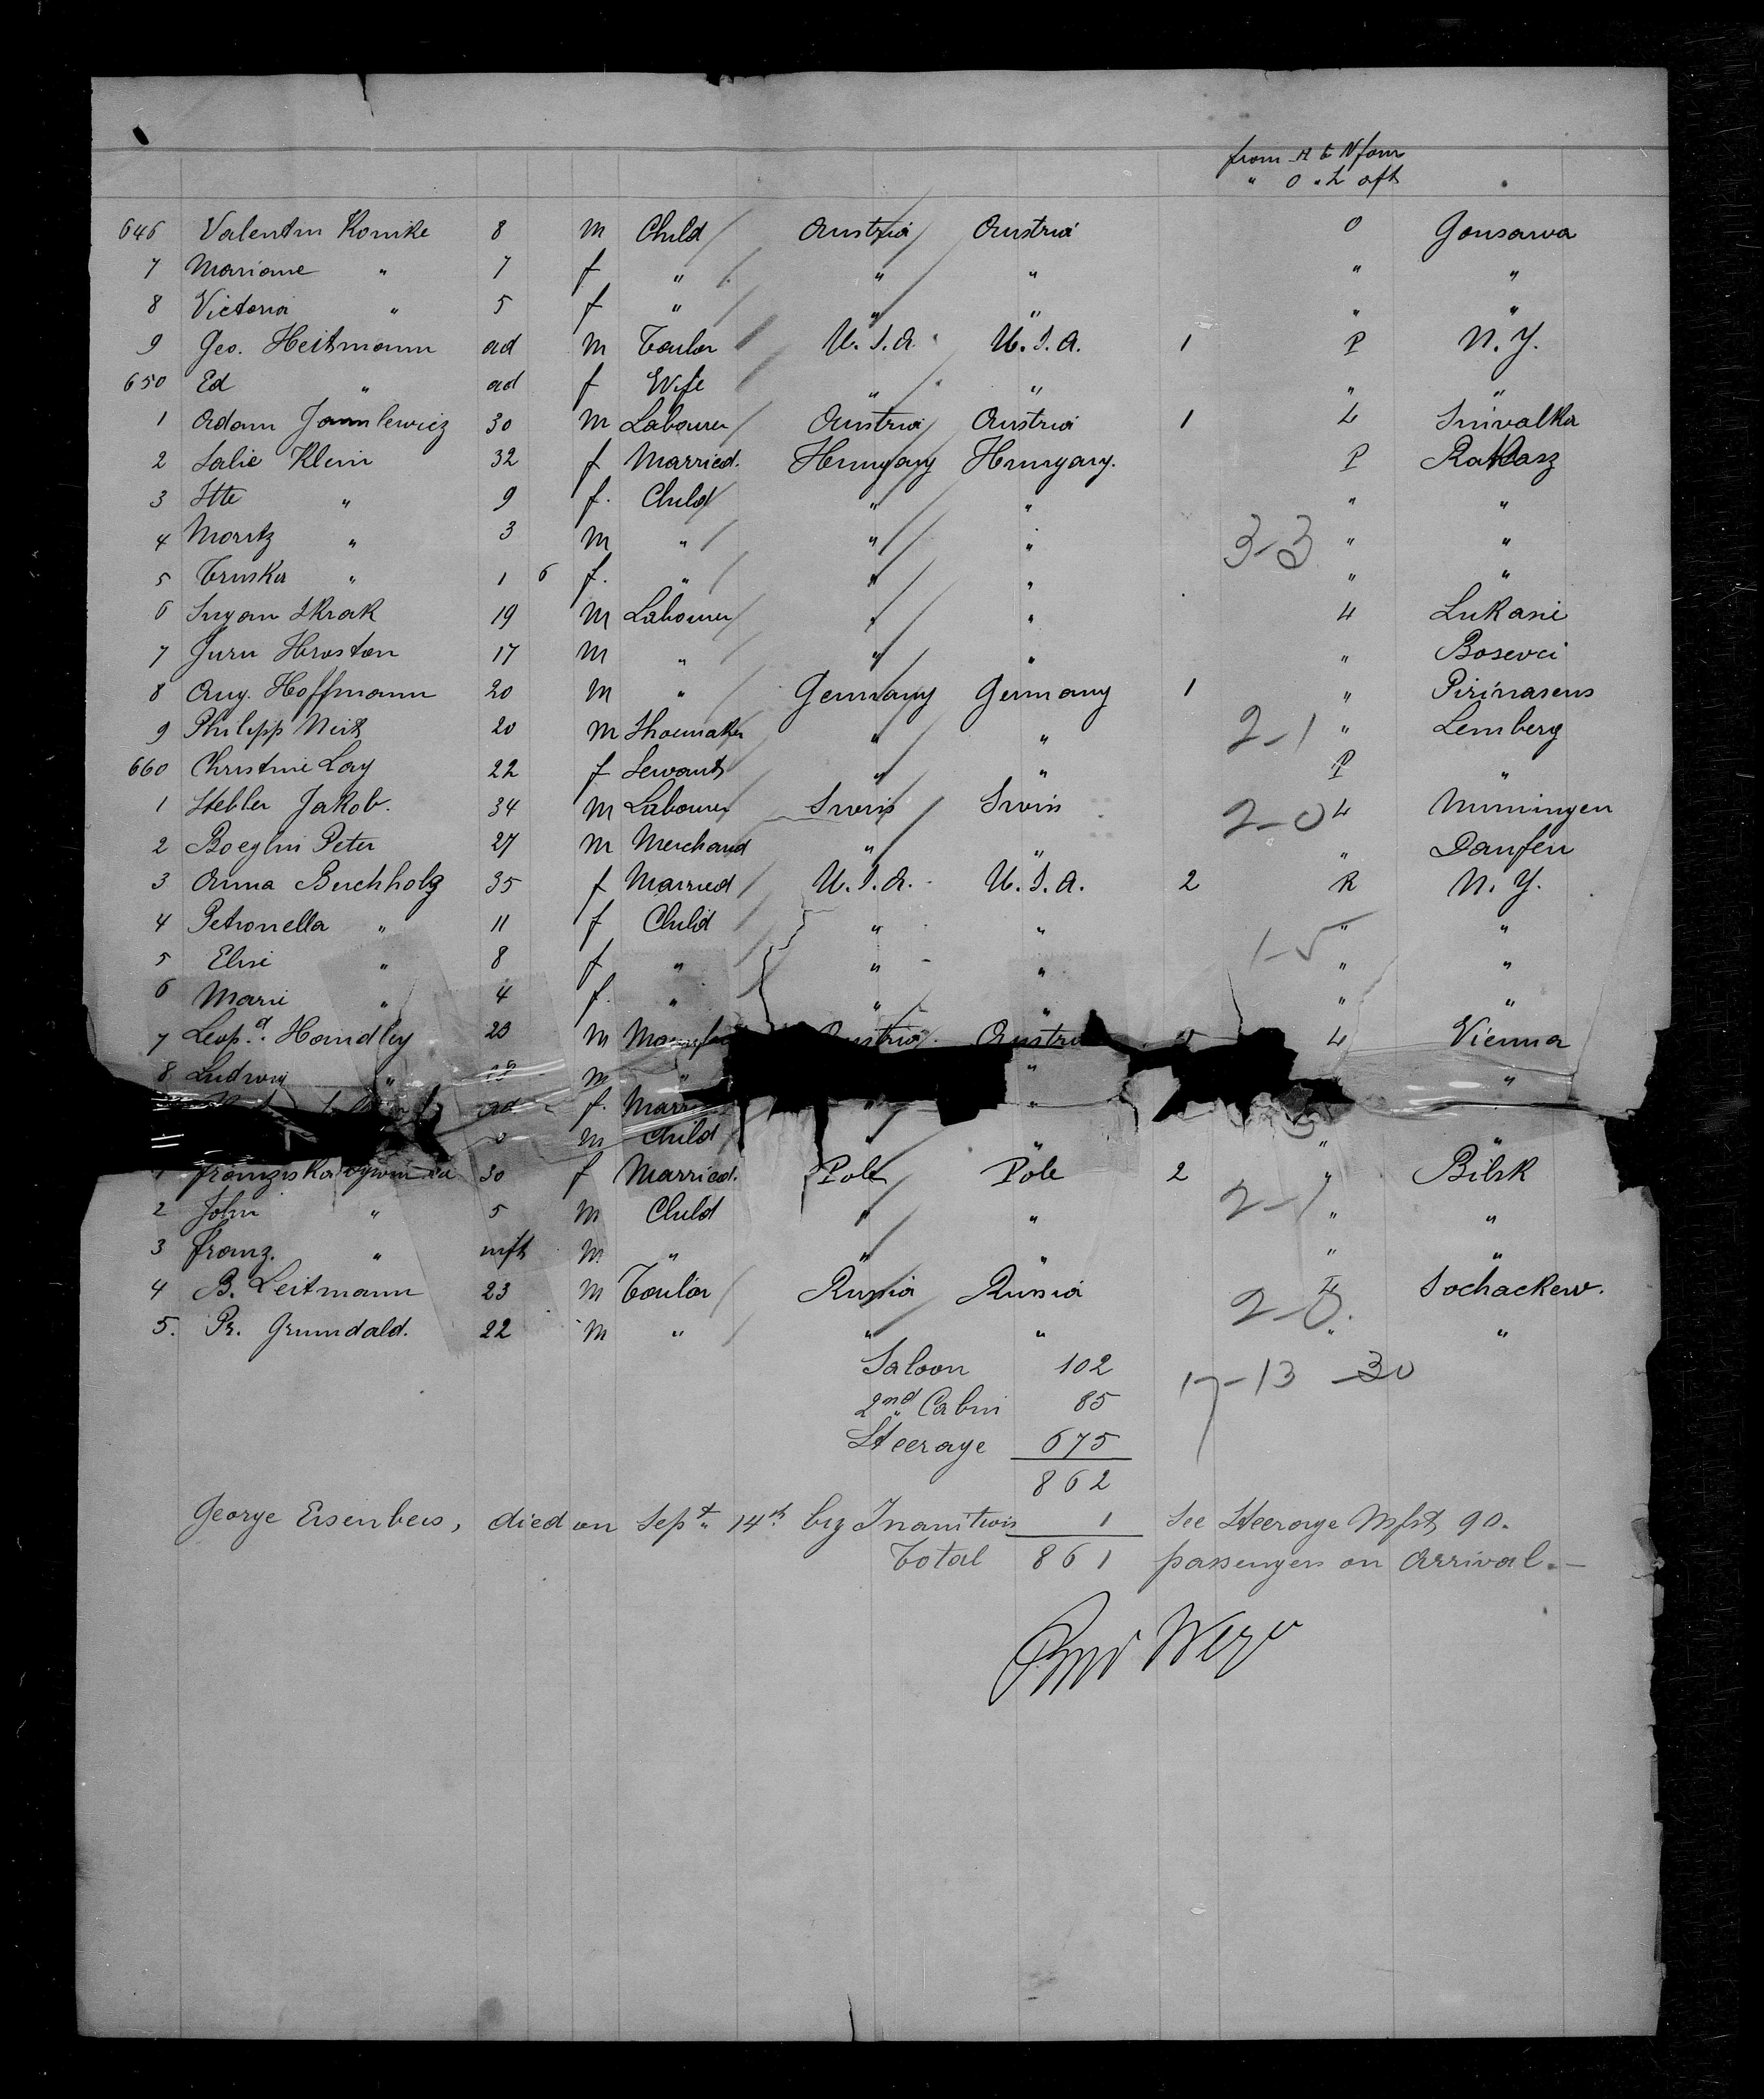 from A to N forw
" O " Z aft
646 Valentin Konike 8 m Child Austria Austria O Gonsawa
7 Mariane " 7 f " " " " "
8 Victoria " 5 f " " " " "
9 Geo. Heitmann ad m Tailor U.S.A. U.S.A. 1 P N.Y.
650 Ed " ad f Wife " " " "
1 Adam 30 m Labourer Austria Austria 1 L Suwalka
2 Salie Klein 32 f Married. Hungary Hungary. P Rakasz
3 Itte " 9 f. Child " " " "
4 Moritz " 3 m " " " 3-3 " "
5 Truska " 1 6 f. " " " " "
6 Skrak 19 m Labourer " " L Lukasie
7 Juru Hroston 17 m " " " " Bosevci
8 Aug. Hoffmann 20 m " Germany Germany 1 " Pirmasens
9 Philipp Neit 20 m Shoemaker " " 2-1 " Lemberg
660 Christine Lay 22 f Servant " " P "
1 Stebler Jakob. 34 m Labourer Swiss Swiss 2-0 L Nuningen
2 Boeglin Peter 27 m Merchand " " " Daufen
3 Anna Buchholz 35 f Married U.S.A. U.S.A. 2 R N.Y.
4 Petronella " 11 f Child " " " "
5 Elise " 8 f " " " 1-5 " "
6 Marie " 4 f. " " " " "
7 Leopd. Handley 23 m Austria Austria L Vienna
8 Ludwig " m " " "
ad f. Married " "
m Child " " " "
1 Franziska 30 f Married. Pole Pole 2 " Bilsk
2 John " 5 m Child " " 2-1 " "
3 Franz. " inft m. " " " " "
4 B. Leitmann 23 m Tailor Russia Russia 2-0. L Sochackew.
5. Pr. Grundald. 22 m " " " " "
Saloon 102 17-13 -30
2nd Cabin 85
Steerage 675
862
George Eisenbeis, died on Sept. 14th by Inanition 1 See Steerage Mfst 90.
Total 861 passengers on Arrival.-